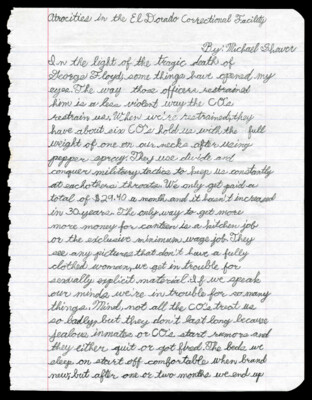 Atrocities in the El Dorado Correctional Facility
By: Michael Shaver
In the light of the tragic death of
George Floyd, some things have opened my
eyes. The way those officers restrained
him is a less violent way the CO's
restrain us. When we're restrained, they
have about six CO's hold us with the full
weight of one on our necks after using
pepper spray. They use divide and
conquer military tactics to keep us constantly
at eachothers throats. We only get paid a
total of $29.40 a month and it hasn't increased
in 30 years. The only way to get more
more money for canteen is a kitchen job
or the exclusive minimum wage job. They
see any pictures that don't have a fully
clothed woman, we get in trouble for
sexually explicit material. If we speak
our minds we're in trouble for so many
things. Mind, not all the CO's treat us
so badly, but they don't last long because
jealous inmates or CO's start rumors and
they either quit or get fired. The beds we
sleep on start off comfortable when brand
new, but after one or two months we end up